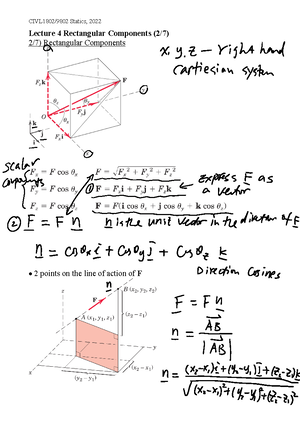 CIVL1802/9802 Statics, 2022
Lecture 4 Rectangular Components (2/7)
2/7) Rectangular Components
x, y, z – right hand
cartiesian system
z
F
F_z k
θ_z
θ_y
θ_x
F_y j
F_x i
O
k
j
i
y
x
scalar
components
F_x = F cos θ_x
F = √(F_x² + F_y² + F_z²)
F_y = F cos θ_y
① F = F_x i + F_y j + F_z k
express F as
a vector
F_z = F cos θ_z
F = F(i cos θ_x + j cos θ_y + k cos θ_z)
② F = F n
n is the unit vector in the direction of F
n = cosθx i + cosθy j + cosθz k
Direction cosines
• 2 points on the line of action of F
z
n
B (x₂, y₂, z₂)
F
A (x₁, y₁, z₁)
(z₂ – z₁)
(x₂ – x₁)
(y₂ – y₁)
y
x
F = F n
n = AB / |AB|
n = (x₂-x₁)i + (y₂-y₁)j + (z₂-z₁)k / √((x₂-x₁)² + (y₂-y₁)² + (z₂-z₁)²)